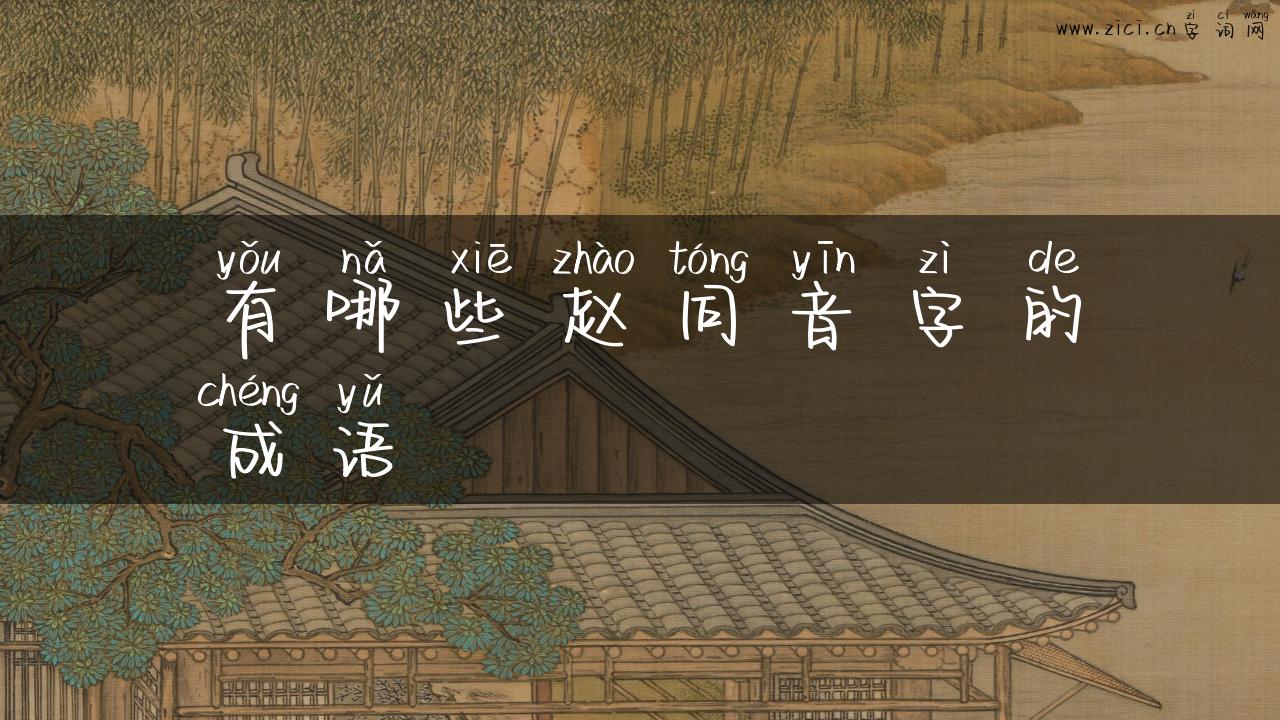 zì cí wǎng
www.zici.cn字词网
yǒu nǎ xiē zhào tóng yīn zì de
有哪些赵同音字的
chéng yǔ
成语